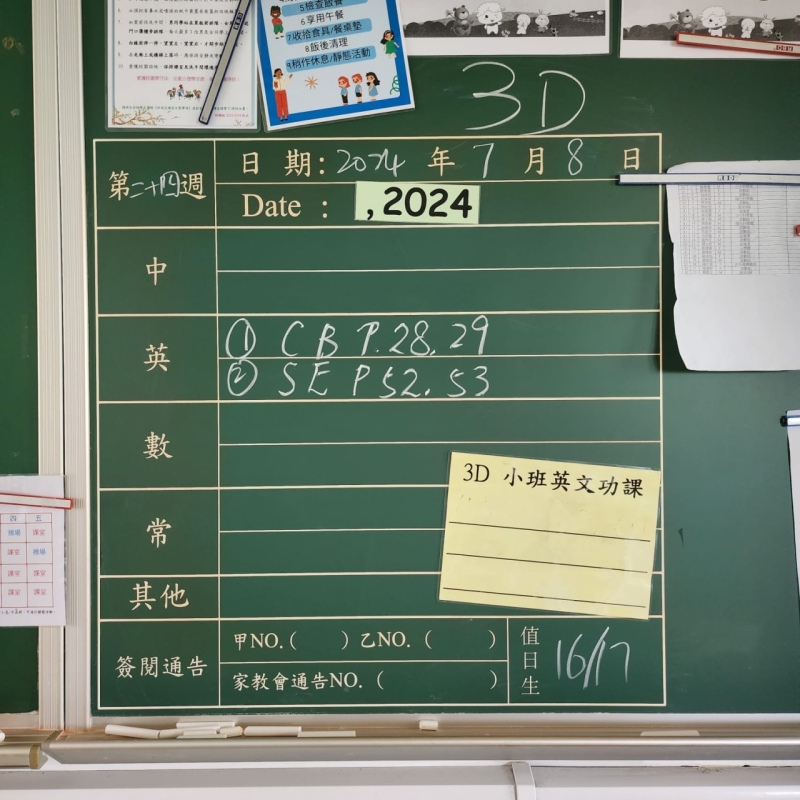 5檢查飯餐
6享用午餐
7收拾食具/餐桌墊
8飯後清理
9稍作休息/靜態活動
3D
第二十四週
日 期: 2024 年 7 月 8 日
Date : , 2024
中
英
① C B P.28, 29
② S E P 52. 53
數
常
3D 小班英文功課
其他
簽閱通告
甲NO.( ) 乙NO. ( )
家教會通告NO. ( )
值日生 16/17
四 五